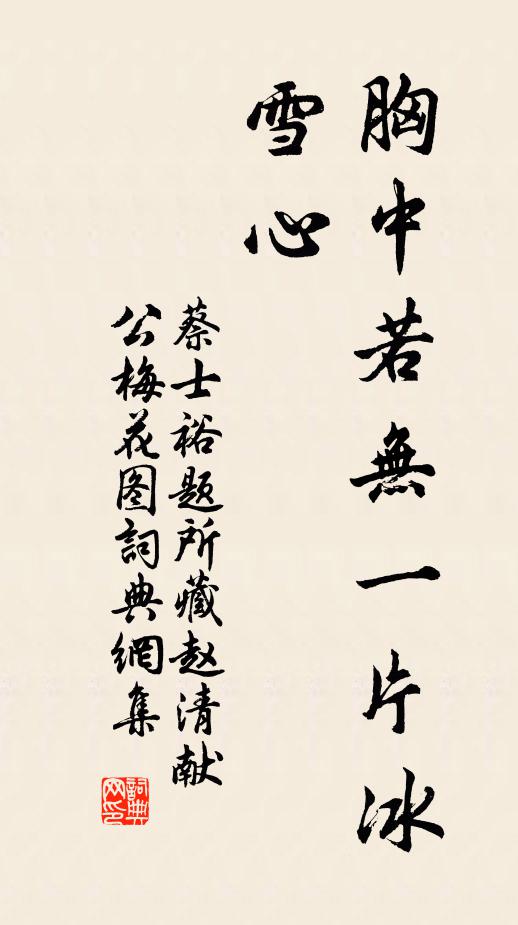 胸中若無一片冰
雪心
蔡士裕题所藏赵清献
公梅花图詞典網集
詞典
网印